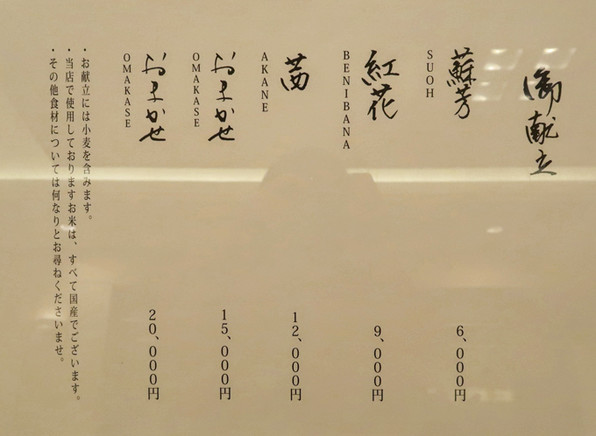 御献立
蘇芳
SUOH
6,000円
紅花
BENIBANA
9,000円
茜
AKANE
12,000円
おまかせ
OMAKASE
15,000円
おまかせ
OMAKASE
20,000円
・お献立には小麦を含みます。
・当店で使用しておりますお米は、すべて国産でございます。
・その他食材については何なりとお尋ねくださいませ。